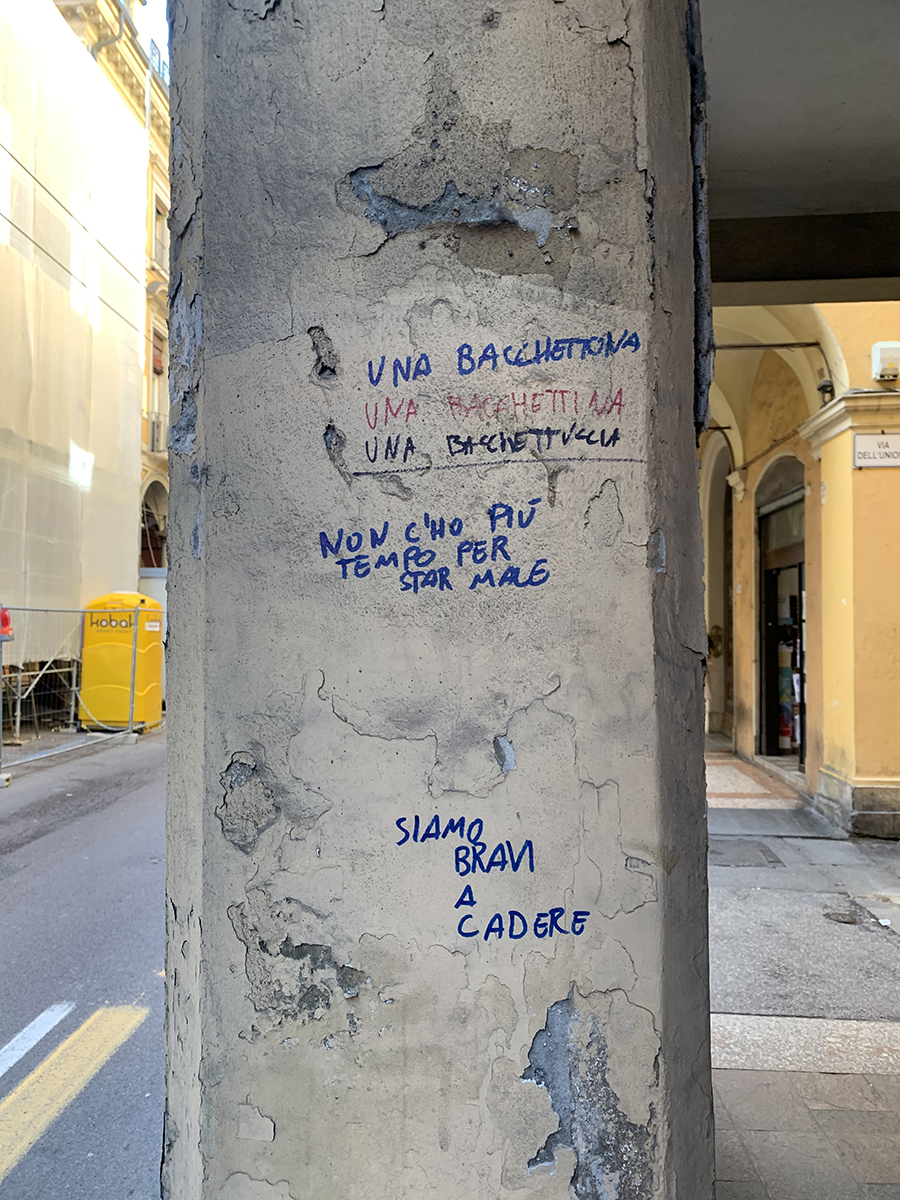 UNA BACCHETTONA
UNA BACCHETTINA
UNA BACCHETTUCCIA
NON C'HO PIÚ
TEMPO PER
STAR MALE
SIAMO
BRAVI
A
CADERE
kobak
VIA
DELL'UNIO